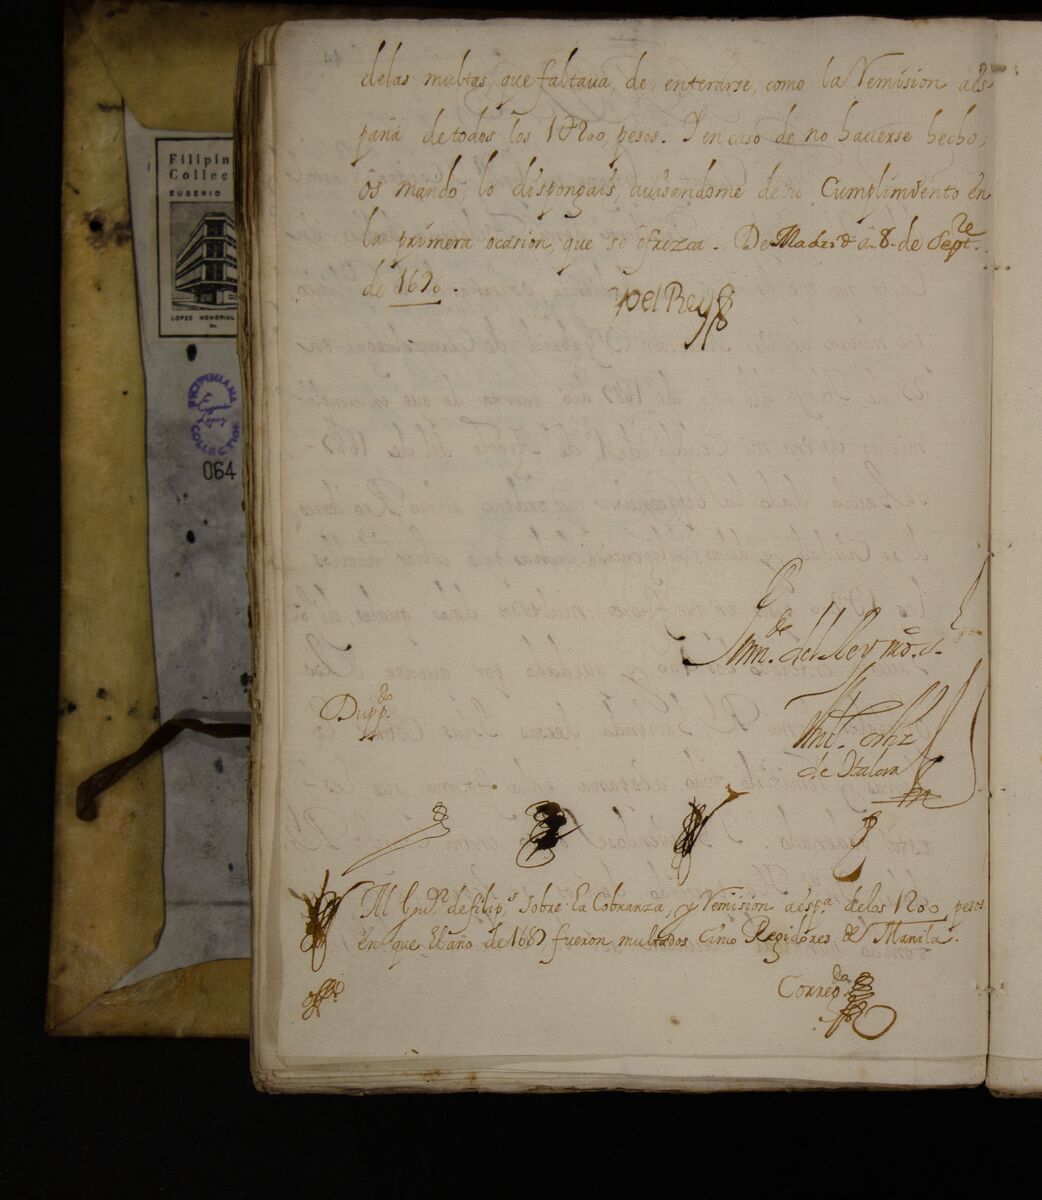 Filipin
Collec
EUGENIO
LOPEZ MEMORIAL
FILIPINIANA
COLLECTION
064
delas multas, que faltaua, de, enterarse, como la Remision aes
paña de todos los 1200, pesos. Y en caso de no hauerse hecho,
os mando, lo dispongais, auisandome de su Cumplimiento en
la primera ocasion, que se ofrezca. De Madrid â 8. de Septre.
de
Yo el Rey
del Rey nro. sr.
Duppdo.
de Otalora
Al Govor. de filips. sobre la Cobranza, y Remision aespa. delos 1200 pesos
en que, el año de 1687, fueron multados Cinco Regidores de Manila.
offo.
Corregda.